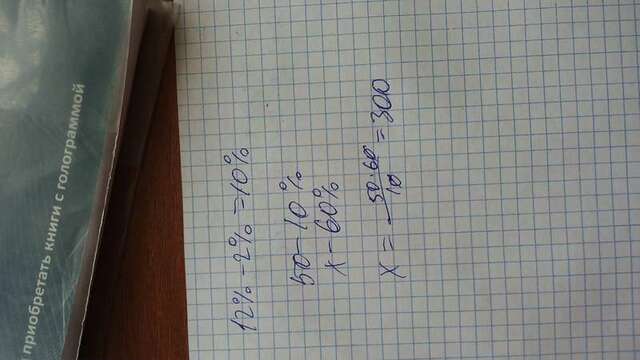 приобретать книги с голограммой
12% - 2% = 10%
50 - 10%
x - 60%
x = 50·60/10 = 300